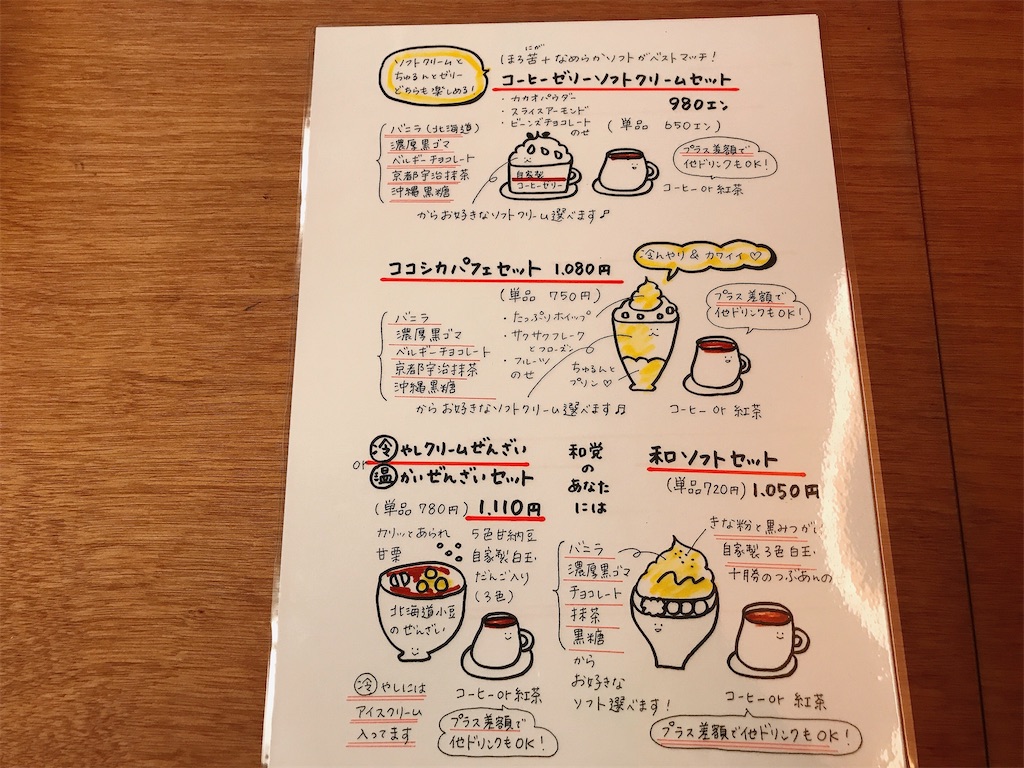 ソフトクリームと
ちゅるんとゼリー
どちらも楽しめる!
にが
ほろ苦+なめらかソフトがベストマッチ!
コーヒーゼリーソフトクリームセット
・カカオパウダー
980エン
・スライスアーモンド
・ビーンズチョコレート
のせ
(単品 650エン)
バニラ(北海道)
濃厚黒ゴマ
ベルギーチョコレート
京都宇治抹茶
沖縄黒糖
からお好きなソフトクリーム選べます♪
自家製
コーヒーゼリー
プラス差額で
他ドリンクもOK!
コーヒーor紅茶
冷んやり&カワイイ♡
ココシカパフェセット 1.080円
(単品 750円)
バニラ
濃厚黒ゴマ
ベルギーチョコレート
京都宇治抹茶
沖縄黒糖
からお好きなソフトクリーム選べます♬
・たっぷりホイップ
・サクサクフレーク
とフローズン
・フルーツ
のせ
ちゅるんと
プリン♡
プラス差額で
他ドリンクもOK!
コーヒーor紅茶
冷やしクリームぜんざい
or
温かいぜんざいセット
(単品 780円) 1.110円
カリッとあられ
甘栗
5色甘納豆
自家製白玉
だんご入り
(3色)
北海道小豆
のぜんざい
冷やしには
アイスクリーム
入ってます
コーヒーor紅茶
プラス差額で
他ドリンクもOK!
和党
の
あなた
には
和ソフトセット
(単品720円) 1.050円
きな粉と黒みつがけ
自家製3色白玉
十勝のつぶあんの
バニラ
濃厚黒ゴマ
チョコレート
抹茶
黒糖
から
お好きな
ソフト選べます!
コーヒーor紅茶
プラス差額で他ドリンクもOK!